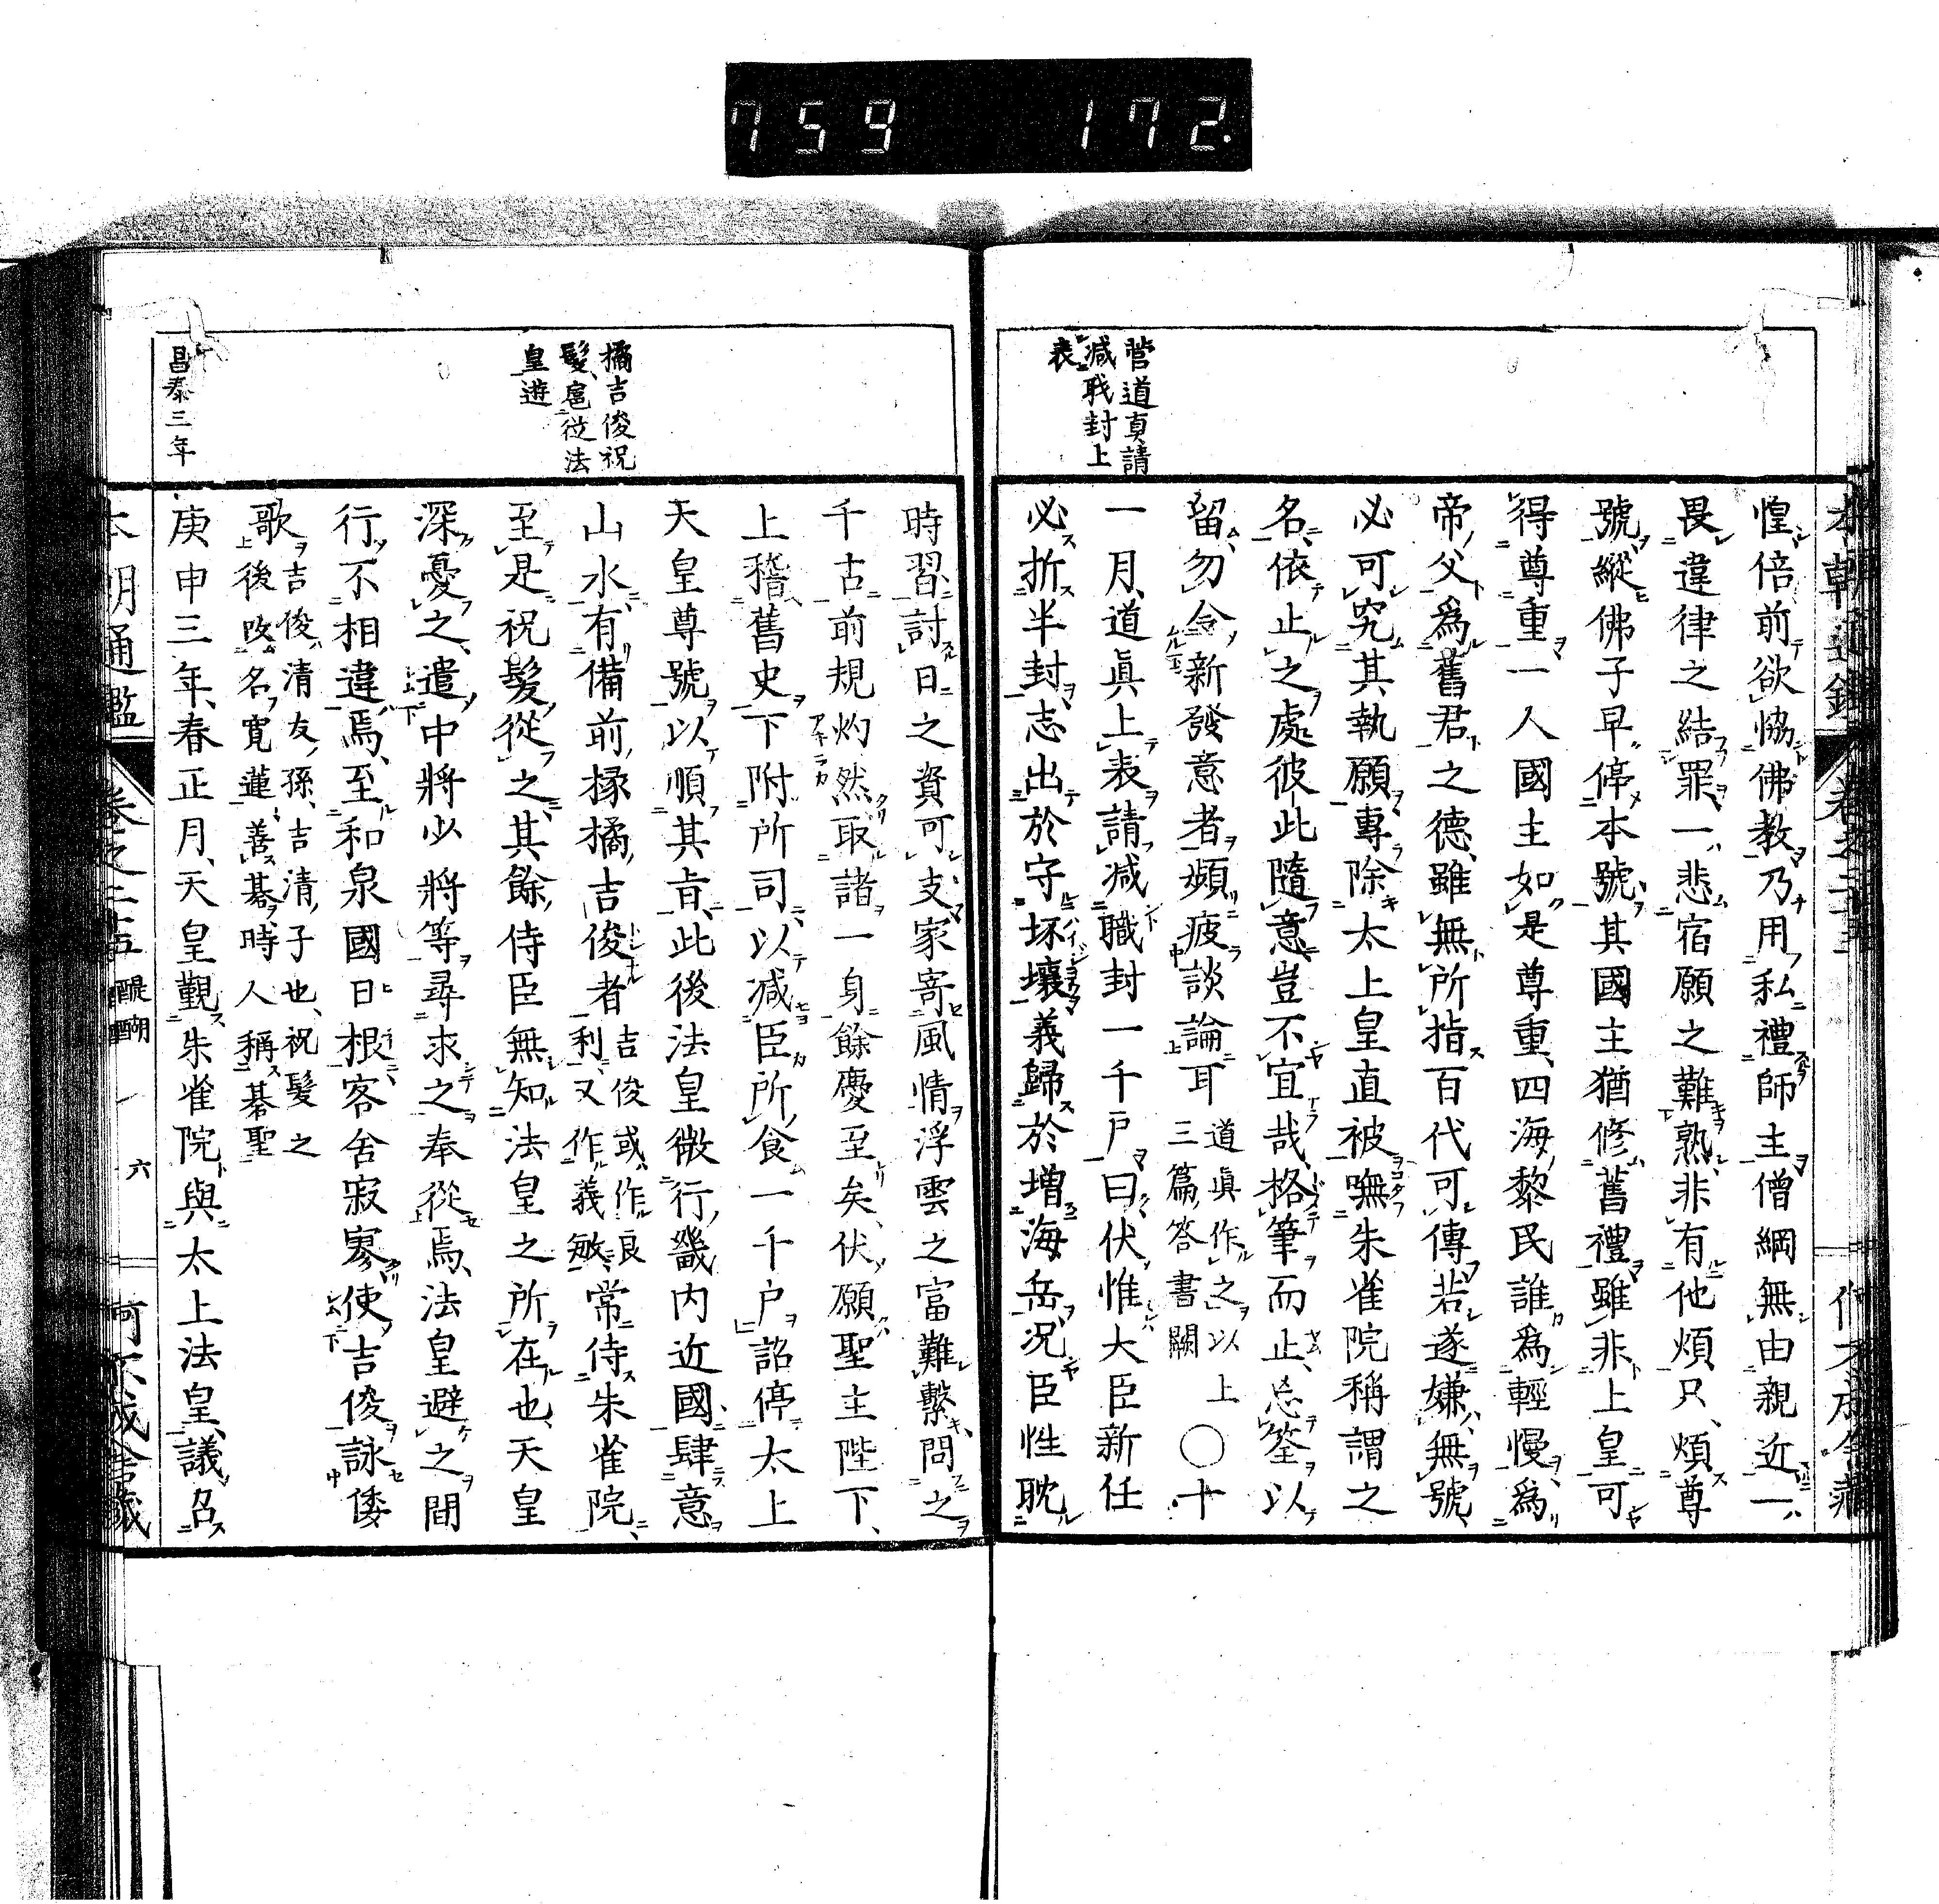 759 172.
菅道真請
減職封上
表
惶倍前欲恊佛教乃用私禮師主僧綱無由親近一
畏違律之結罪一悲宿願之難熟非有他煩只煩尊
號縱佛子早停本號其國主猶修舊禮雖非上皇可
得尊重一人國主如是尊重四海黎民誰爲輕慢爲
帝父爲舊君之德雖無所指百代可傳若遂嫌無號
必可究其執願專除太上皇直被嘸朱雀院稱謂之
名依止之處彼此隨意豈不宜哉格筆而止忘筌以
留勿令新發意者頻疲談論耳
道眞作之以上
三篇答書闕
○十
一月道眞上表請減職封一千戸曰伏惟大臣新任
必折半封志出於守坏壤義歸於増海岳况臣性耽
橘吉俊祝
髮扈從法
皇遊
昌泰三年
時習討日之資可支家寄風情浮雲之富難繫問之
千古前規灼然取諸一身餘慶至矣伏願聖主陛下
上稽舊史下附所司以減臣所食一千户詔停太上
天皇尊號以順其旨此後法皇微行畿内近國肆意
山水有備前掾橘吉俊者
吉俊或作良
利又作義敏
常侍朱雀院
至是祝髮從之其餘侍臣無知法皇之所在也天皇
深憂之遣中將少將等尋求之奉從焉法皇避之間
行不相違焉至和泉國日根客舍寂寥使吉俊詠倭
歌
吉俊清友孫吉清子也祝髮之
後改名寛蓮善碁時人稱碁聖
庚申三年春正月天皇覲朱雀院與太上法皇議召
本朝通鑑 卷之二十五 醍醐 六